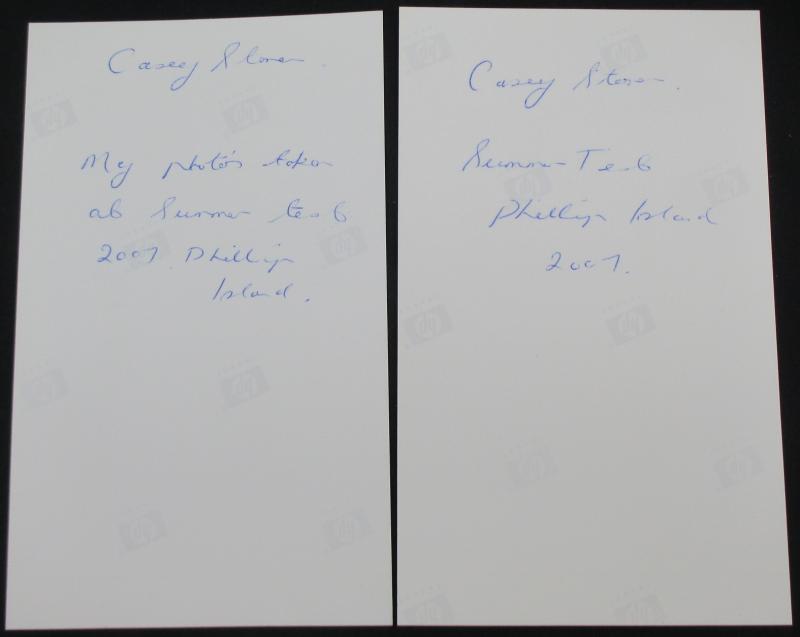 Casey Stoner.
My photo's taken
at Summer test
2007. Phillip
Island.
Casey Stoner.
Summer Test
Phillip Island
2007.
hp